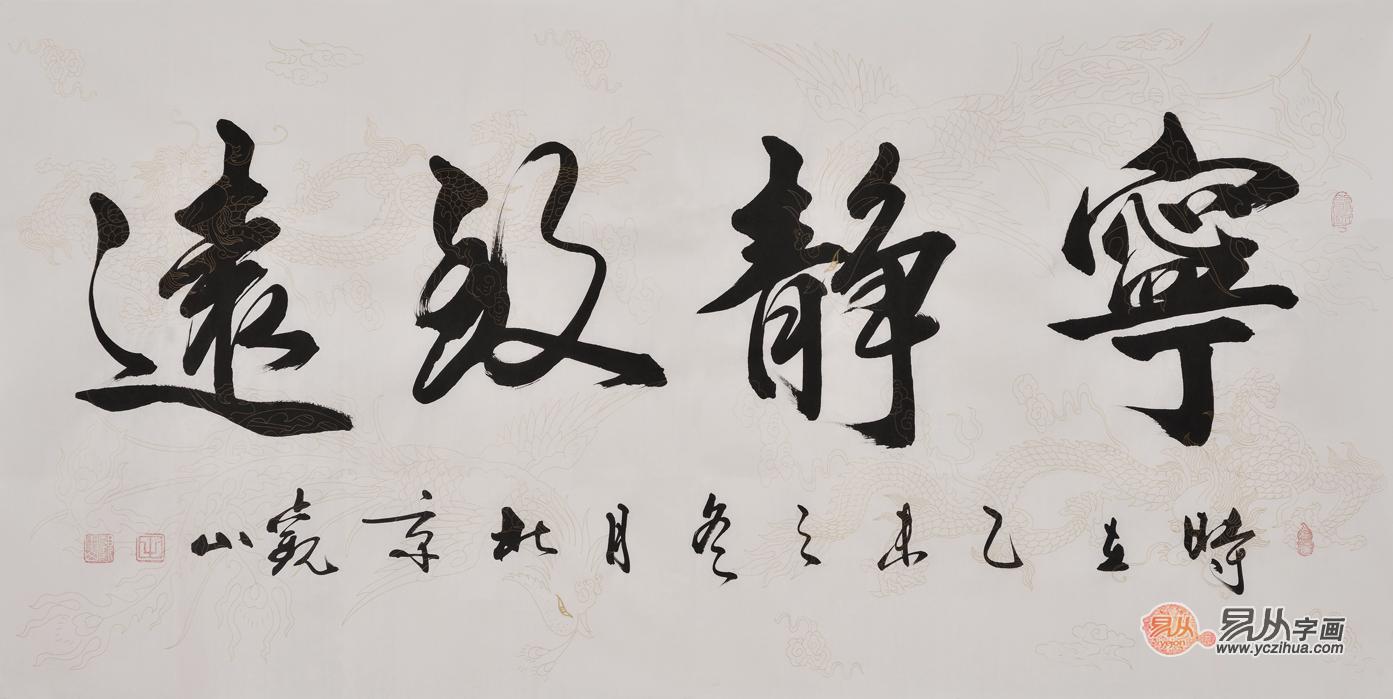 寧靜致遠
時在乙未之冬月北京觀山
易从
易从字画
www.yczihua.com